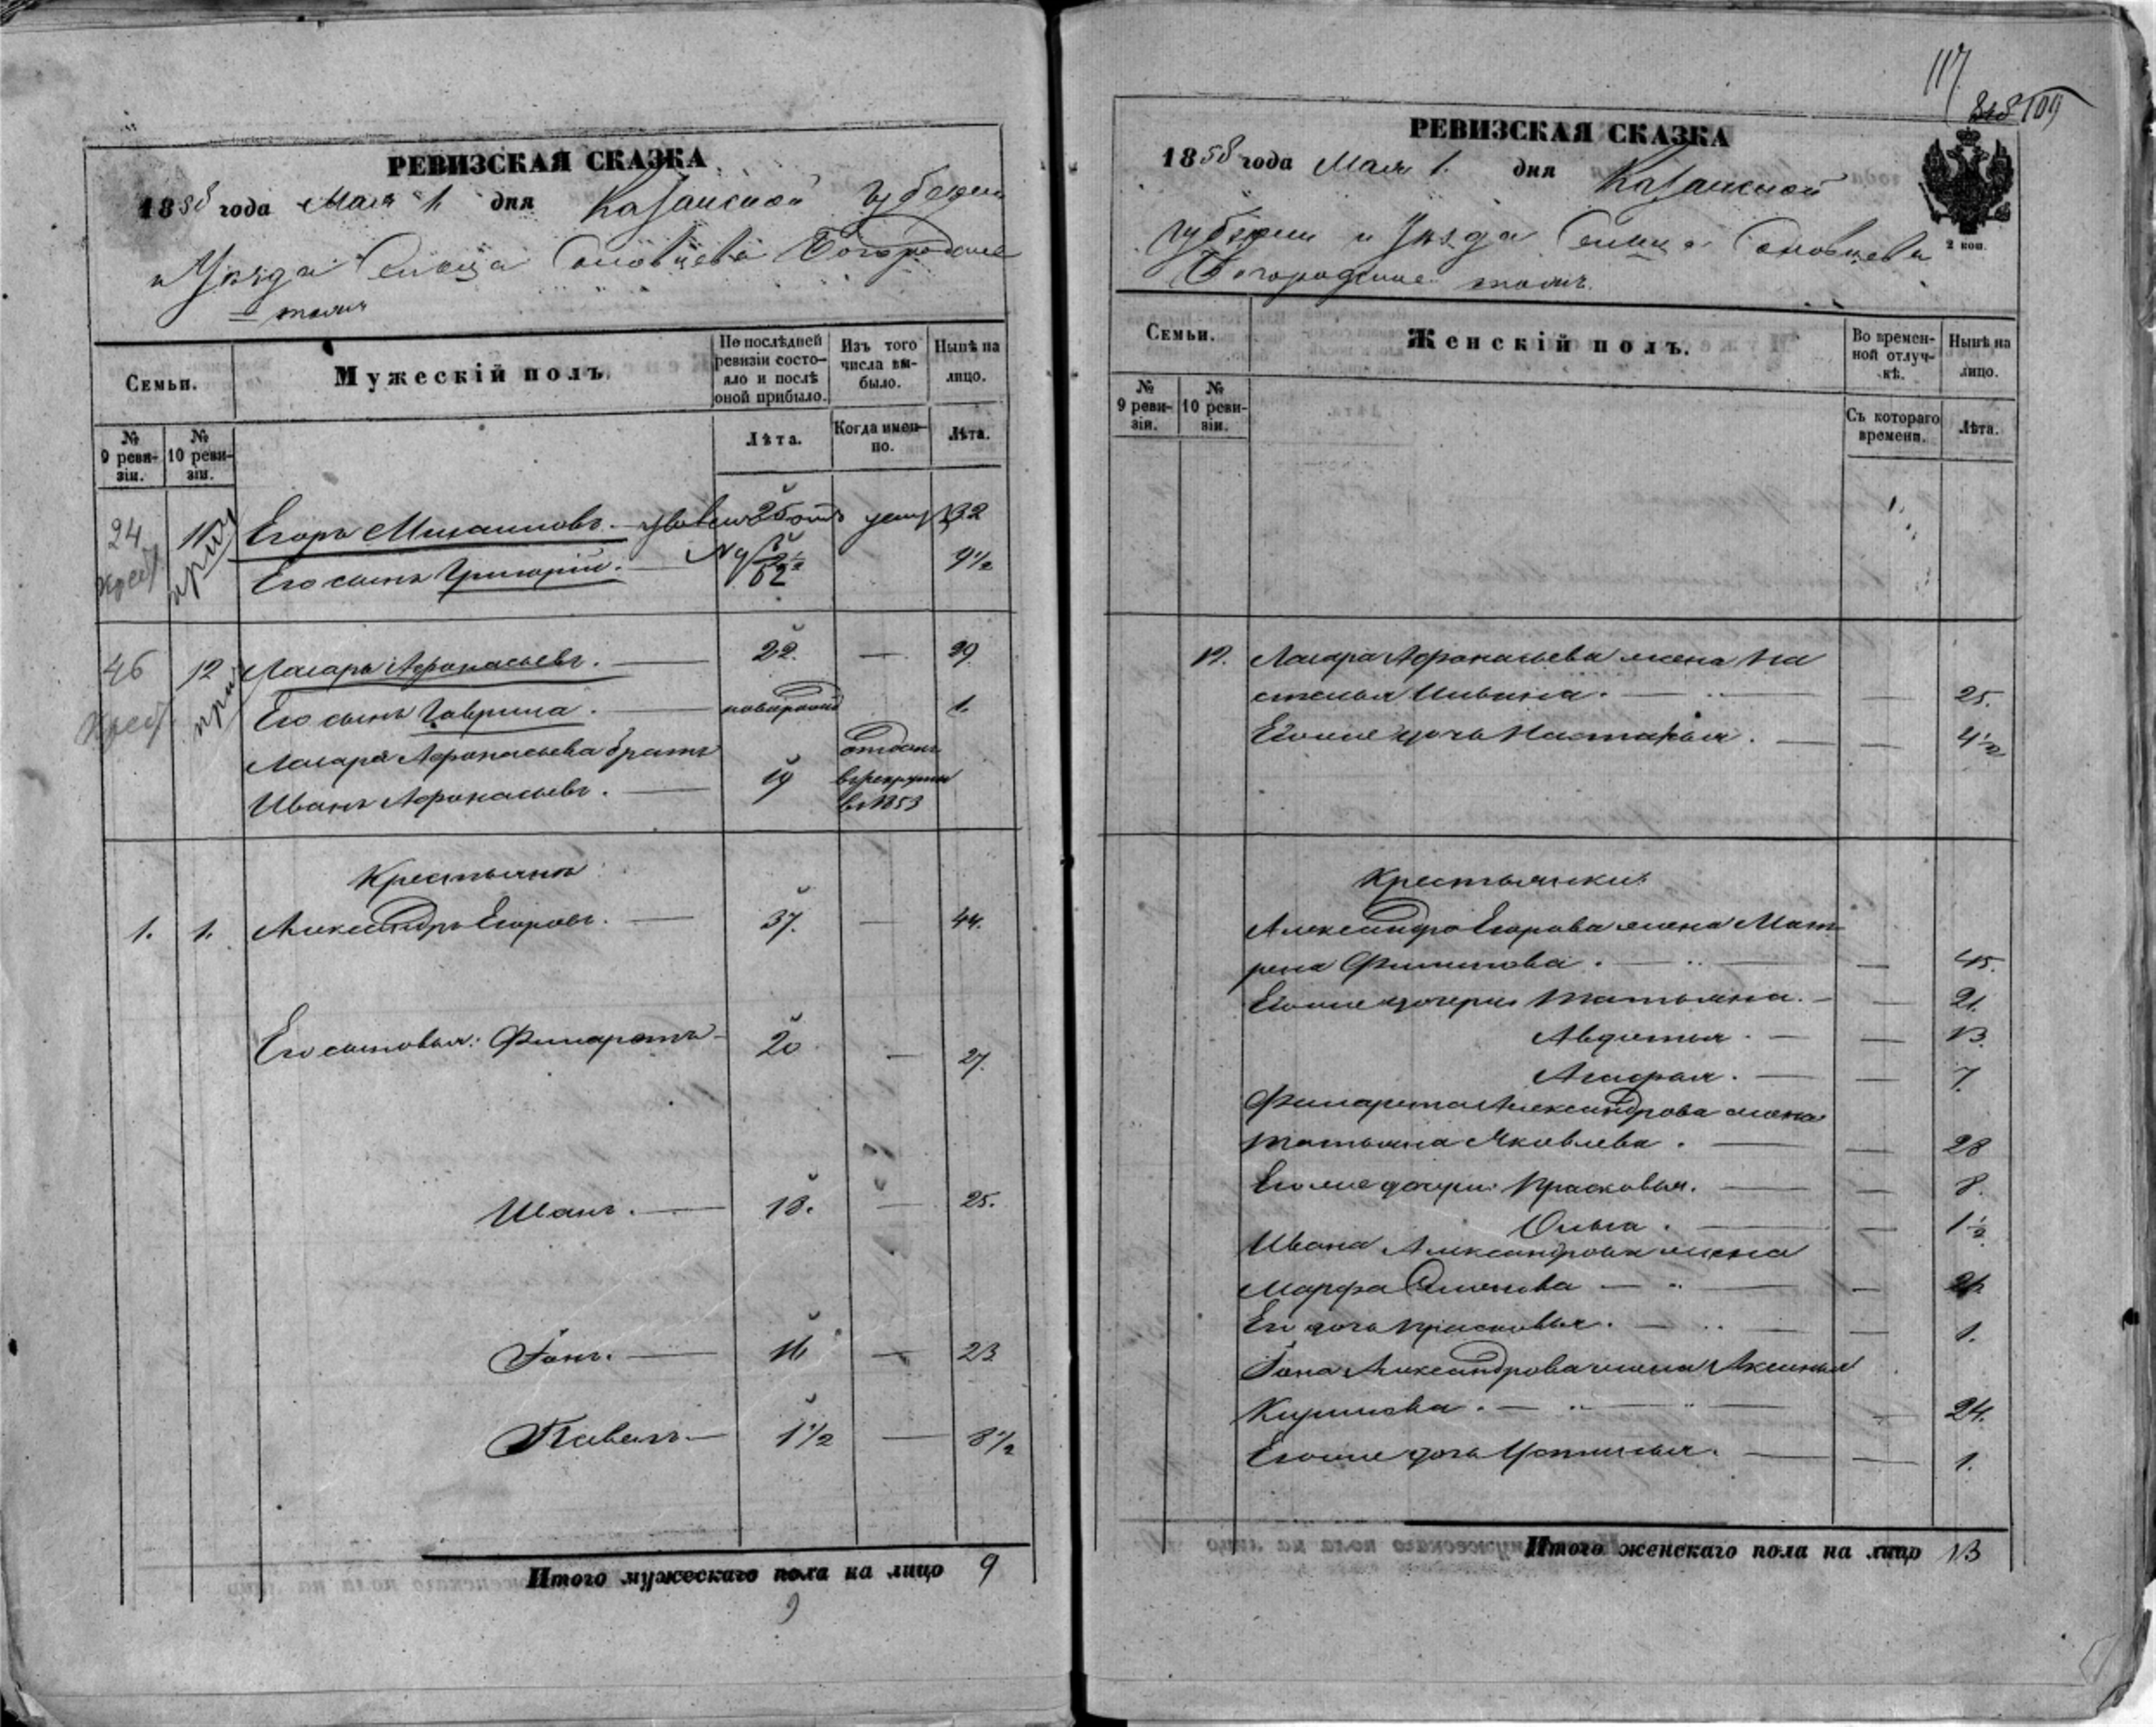 РЕВИЗСКАЯ СКАЗКА
1858 года Мая 1. дня Казанской Губернии
и Уѣзда Сельца Соловцева Богородское
тожъ
Семьи.
Мужескій полъ.
По послѣдней ревизіи состояло и послѣ оной прибыло.
Изъ того числа выбыло.
Нынѣ на лицо.
№ 9 ревизіи.
№ 10 ревизіи.
Лѣта.
Когда именно.
Лѣта.
24 11 Егоръ Михаиловъ. 25 32
Его сынъ Григорій. 2 1/2 9 1/2
46 12 Лазарь Афонасьевъ. — 22. — 29
Его сынъ Гаврила. — новорожд 1.
Лазаря Афонасьева братъ отданъ
Иванъ Афонасьевъ. — 19 в рекруты
в 1853
Крестьяне
1. 1. Александръ Егоровъ. — 37. — 44.
Его сыновья: Филаретъ — 20 — 27.
Иванъ. — 18. — 25.
Іонъ. — 16 — 23
Павелъ — 1 1/2 — 8 1/2
Итого мужескаго пола на лицо 9
117
109
РЕВИЗСКАЯ СКАЗКА
1858 года Мая 1. дня Казанской
Губерніи и Уѣзда Сельца Соловцева
Богородское тожъ.
2 коп.
Семьи.
Женскій полъ.
Во временной отлучкѣ.
Нынѣ на лицо.
№ 9 ревизіи.
№ 10 ревизіи.
Съ котораго времени.
Лѣта.
12. Лазаря Афонасьева жена На
стасья Ильина. — — 25.
Его же дочь Настасья. — — 4 1/2
Крестьянки:
Александра Егорова жена Мат
рена Филипова. — — 45.
Его же дочери Татьяна. — — 21.
Авдотья. — — 13.
Агафья. — — 7.
Филарета Александрова жена
Татьяна Яковлева. — — 28
Его же дочери: Прасковья. — — 8.
Ольга. — — 1 1/2
Ивана Александрова жена
Марфа Семенова — —
Его дочь Прасковья. — — 1.
Іона Александрова жена Аксинья
Кирилова. — — 24.
Его же дочь Устинья. — — 1.
Итого женскаго пола на лицо 13